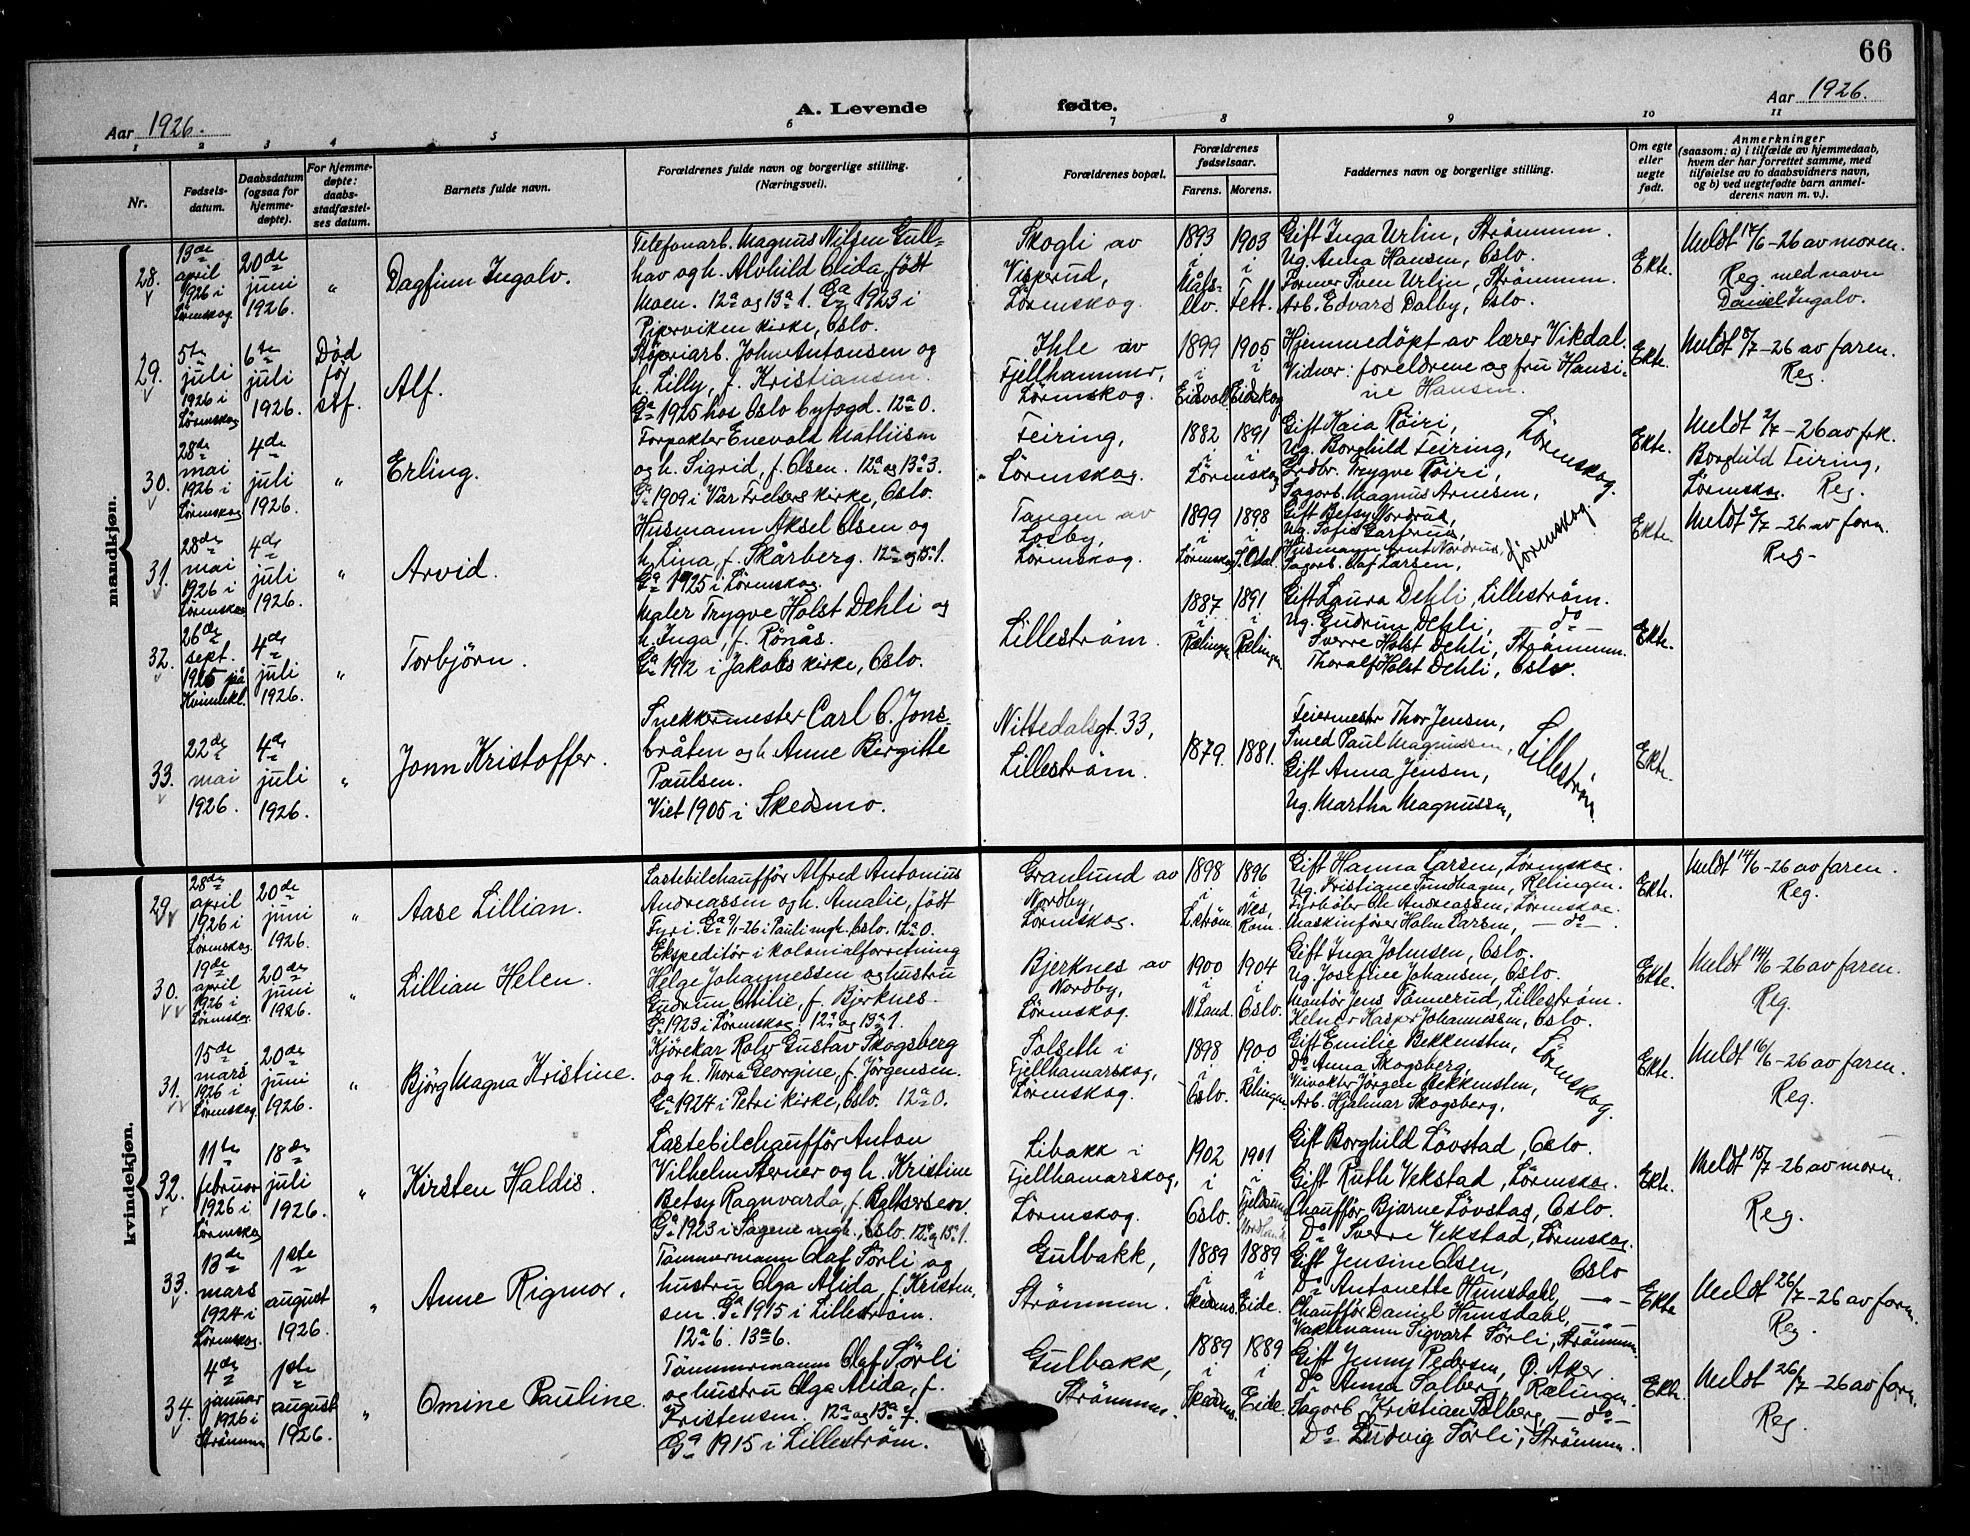 66
Aar 1926.
A. Levende fødte.
Aar 1926.
1 2 3 4 5 6 7 8 9 10 11
Nr.
Fødsels-
datum.
Daabsdatum
(ogsaa for
hjemme-
døpte).
For hjemme-
døpte:
daabs-
stadfæstel-
ses datum.
Barnets fulde navn.
Forældrenes fulde navn og borgerlige stilling.
(Næringsvei).
Forældrenes bopæl.
Forældrenes
fødselsaar.
Farens. Morens.
Faddernes navn og borgerlige stilling.
Om egte
eller
uegte
født.
Anmerkninger
(saasom: a) i tilfælde av hjemmedaab,
hvem der har forrettet samme, med
tilføielse av to daabsvidners navn,
og b) ved uegtefødte barn anmel-
derens navn m. v.).
mandkjøn.
28.
13de
april
1926 i
Lørenskog.
20de
juni
1926.
"
Dagfinn Ingolv.
Telefonarb. Magnus Nilsen Gull-
hav og h. Alvhild Alida, født
Moen. 12a og 13a 1. Ga 1923 i
Piperviken kirke, Oslo.
Skogli av
Visperud,
Lørenskog.
1893
i
Måls-
elv.
1903
i
Fett.
Gift Inga Urlin, Strømmen.
Ug. Anna Hansen, Oslo.
Former Sven Urlin, Strømmen.
Arb. Edvard Dalby, Oslo.
Ekte.
Meldt 14/6-26 av moren.
Reg. med navn
Daniel Ingolv.
29.
5te
juli
1926 i
Lørenskog
6te
juli
1926.
Død
før
stf.
Alf.
Støperiarb. John Antonsen og
h. Lilly, f. Kristiansen.
Ga 1925 hos Oslo byfogd. 12a 0.
Ihle av
Fjellhammer,
Lørenskog.
1899
i
Eidsvoll
1905
i
Eidskog
Hjemmedøpt av lærer Vikdal.
Vidner: foreldrene og fru Hansi-
ne Hansen.
Ekte.
Meldt 8/7-26 av faren.
Reg.
30.
28de
mai
1926 i
Lørenskog
4de
juli
1926.
"
Erling.
Forpakter Enevald Mathisen
og h. Sigrid, f. Olsen. 12a og 13a 3.
Ga 1909 i Vår Frelsers kirke, Oslo.
Feiring,
Lørenskog.
1882
i
Lørenskog
1891
Gift Kaia Røiri,
Ug. Borghild Feiring,
Grdbr. Trygve Røiri,
Sagarb. Magnus Arnesen,
Lørenskog.
Ekte.
Meldt 2/7-26 av frk.
Borghild Feiring,
Lørenskog. Reg.
31.
28de
mai
1926 i
Lørenskog
4de
juli
1926.
"
Arvid.
Husmann Aksel Olsen og
h. Lina, f. Skårberg. 12a og 13a 1.
Ga 1925 i Lørenskog.
Tangen av
Losby,
Lørenskog.
1899
i
Lørenskog
1898
i
S. Odal.
Gift Betsy Nordrus,
Ug. Sofie
Husmann Nordrus,
Sagarb. Olaf Larsen,
Lørenskog
Ekte.
Meldt 3/7-26 av faren.
Reg.
32.
26de
sept.
1925 på
Kvinnekl.
4de
juli
1926.
"
Torbjørn.
Maler Trygve Holst Dehli og
h. Inga, f. Rønås.
Ga 1912 i Jakobs kirke, Oslo.
Lillestrøm.
1887
i
Rælingen
1891
i
Rælingen
Gift Laura Dehli, Lillestrøm.
Ug. Gudrun Dehli, — do —
Sverre Holst Dehli, Strømmen.
Thoralf Holst Dehli, Oslo.
Ekte.
33.
22de
mai
1926.
4de
juli
1926.
"
Jonn Kristoffer.
Snekkermester Carl C. Jons-
bråten og h. Anne Birgitte
Paulsen.
Viet 1905 i Skedsmo.
Nittedalsgt. 33,
Lillestrøm.
1879.
1881.
Feiermestr Thor Jensen,
Smed Paul Magnussen,
Gift Anna Jensen,
Ug. Martha Magnussen,
Lillestrøm.
Ekte.
kvindekjøn.
29.
28de
april
1926 i
Lørenskog.
20de
juni
1926.
"
Aase Lillian.
Lastebilchauffør Alfred Antonius
Andreassen og h. Amalie, født
Fyri. Ga 9/1-26 i Pauli mgh. Oslo. 12a 0.
Granlund av
Nordby,
Lørenskog.
1898
i
L.strøm.
1896
i
Nes,
Rom.
Gift Hanna Larsen, Lørenskog.
Ug. Kristiane Tundhagen, Rælingen.
Fyrbøter Ole Andreassen, Lørenskog.
Maskinfører Holm Larsen, — do —.
Ekte.
Meldt 14/6-26 av faren.
Reg.
30.
19de
april
1926 i
Lørenskog.
20de
juni
1926.
"
Lillian Helen.
Ekspeditør i kolonialforretning
Helge Johannessen og hustru
Gudrun Otilie, f. Bjerknes.
Ga 1923 i Lørenskog. 12a og 13a 1.
Bjerknes av
Nordby,
Lørenskog.
1900
i
N. Land.
1904
i
Oslo.
Gift Inga Johnsen, Oslo.
Ug. Josefine Johansen, Oslo.
Montør Jens Tønnerud, Lillestrøm.
Kelner Kasper Johannessen, Oslo.
Ekte.
Meldt 14/6-26 av faren.
Reg.
31.
15de
mars
1926 i
Lørenskog
20de
juni
1926.
"
Bjørg Magna Kristine.
Kjørekar Rolv Gustav Skogsberg
og h. Thora Georgine, f. Jörgensen.
Ga 1924 i Petri kirke, Oslo. 12a 0.
Solseth i
Fjellhamarskog,
Lørenskog.
1898
i
Oslo.
1900
i
Rælingen
Gift Emilie Bekkensten,
Do Anna Skogsberg,
Jørgen Bekkensten,
Arb. Hjalmar Skogsberg,
Lørenskog.
Ekte.
Meldt 16/6-26 av faren.
Reg.
32.
11te
februar
1926 i
Lørenskog
18de
juli
1926.
"
Kirsten Haldis.
Lastebilchauffør Anton
Vilhelm Sterner og h. Kristine
Betsy Ragnvarda, f. Baltsersen.
Ga 1923 i Sagene mgh., Oslo. 12a og 13a 1.
Libakk i
Fjellhamarskog,
Lørenskog.
1902
i
Oslo.
1901
i
Nordland
Gift Borghild Løvstad, Oslo.
Gift Ruth Vekstad, Lørenskog.
Chauffør Bjarne Løvstad, Oslo.
Do Sverre Vekstad, Lørenskog.
Ekte.
Meldt 15/7-26 av moren.
Reg.
33.
13de
mars
1924 i
Lørenskog.
1ste
august
1926.
"
Anne Rigmor.
Tømmermann Olaf Sørli og
hustru Olga Alida, f. Kristen-
sen. Ga 1915 i Lillestrøm.
12a 6. 13a 6.
Gulbakk,
Strømmen.
1889
i
Skedsm.
1889
i
Eide.
Gift Jensine Olsen, Oslo
Do Antonette Hunsdahl, — " —
Chauffør Daniel Hunsdahl, — " —
Vaktmann Sigvart Sørli, Strømmen.
Ekte
Meldt 26/7-26 av faren.
Reg.
34.
4de
januar
1926 i
Strømmen
1ste
august
1926.
"
Omine Pauline.
Tømmermann Olaf Sørli
og hustru Olga Alida, f.
Kristensen. 12a og 13a 7.
Ga 1915 i Lillestrøm.
Gulbakk,
Strømmen.
1889
i
Skedsm.
1889
i
Eide.
Gift Jenny Pedersen, Ø. Aker.
Do Anna Solberg, Rælingen.
Sagarb. Kristian Solberg, — do —
Do Ludvig Sørli, Strømmen.
Ekte.
Meldt 26/7-26 av faren.
Reg.